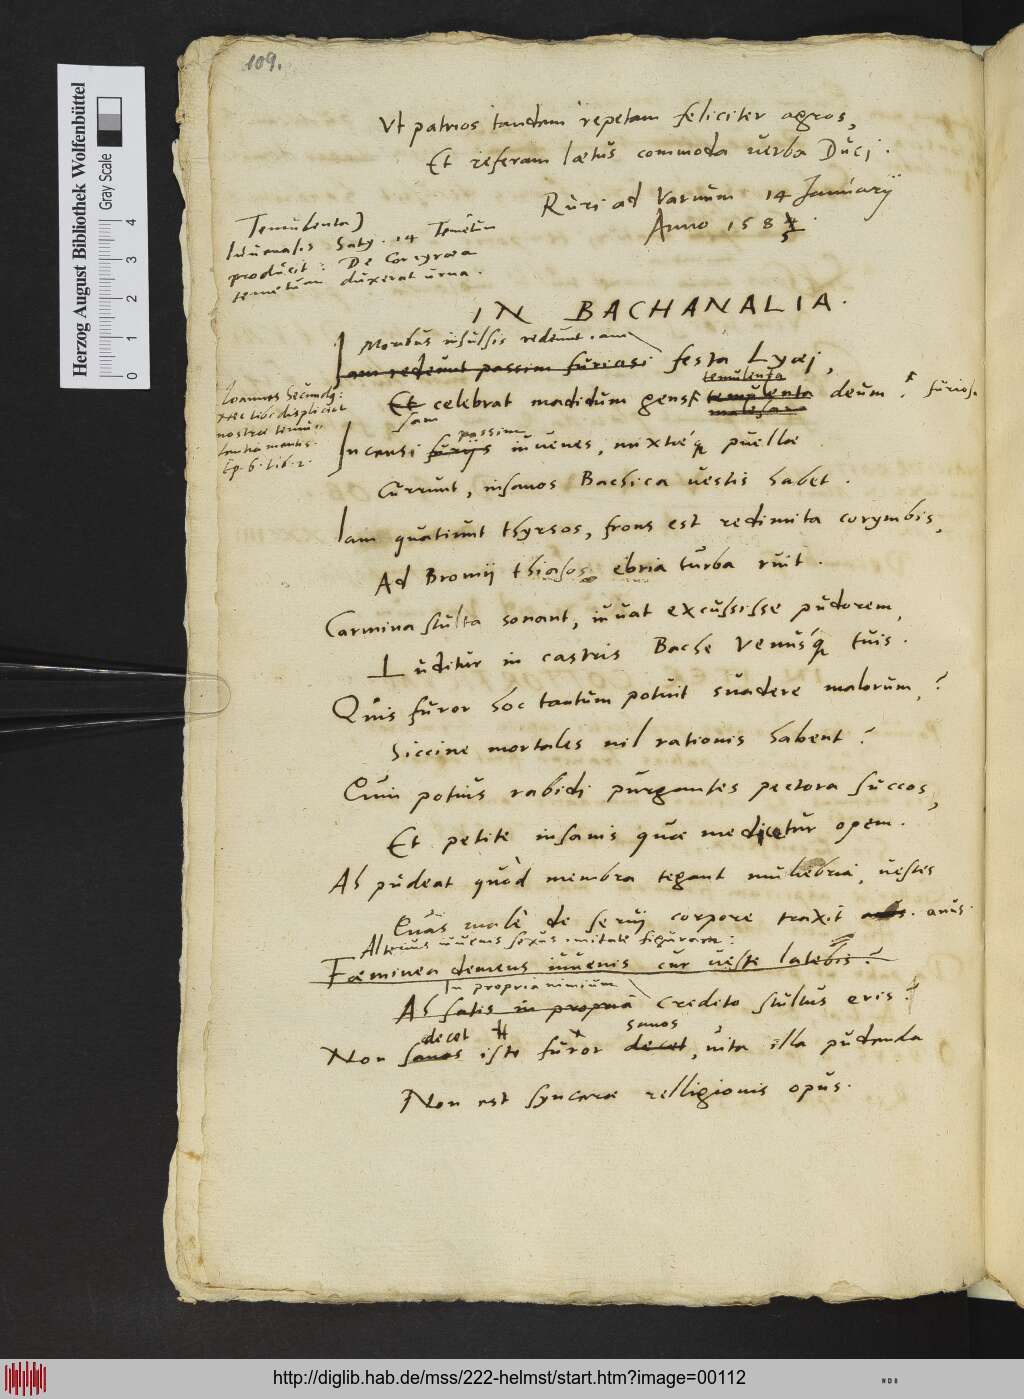 109.
Vt patrios tandem repetam feliciter agros,
Et referam lætus commoda verba Duci.
Ruri ad Varnum 14 Januarij
Anno 1584
5
Temulenta]
Iuuenalis Saty. 14 Temetum
producit: De Corcyræa
temetum duxerat urna.
IN BACHANALIA.
Moribus insulsis redeunt
Iam redeunt passim furiosi festa Lyæi,
temulenta
Et celebrat madidum gens temulenta deum. furiosa
malesana
Ioannes Secundus:
nec tibi displiceat
nostræ temu-
lentia mentis.
Ep. 6. Lib. 2.
passim
Incensi furijs iuuenes, mixtéq puellæ
Currunt, insanos Bachica vestis habet.
Iam quatiunt thyrsos, frons est redimita corymbis,
Ad Bromij thiasos ebria turba ruit.
Carmina stulta sonant, iuuat excussisse pudorem,
Luditur in castris Bache Venusq́ tuis.
Quis furor hoc tantum potuit suadere malorum,?
Siccine mortales nil rationis habent?
Quin potius rabidi purgantes pectora succos,
Et petite insanis quæ medicetur opem.
Ah pudeat quòd membra tegant muliebria vestes
Quas malè de seruij corpore traxit anus.
Alterius iuuenis sexus imitate figuram:
Fœminea demens iuuenis cur veste latebis?
In propria nimium
Ah satis in propria credito stultus eris?
decet sanos
Non sanos iste furor decet, vita illa pudenda
Non est synceræ relligionis opus.
Herzog August Bibliothek Wolfenbüttel
Gray Scale
0 1 2 3 4
http://diglib.hab.de/mss/222-helmst/start.htm?image=00112